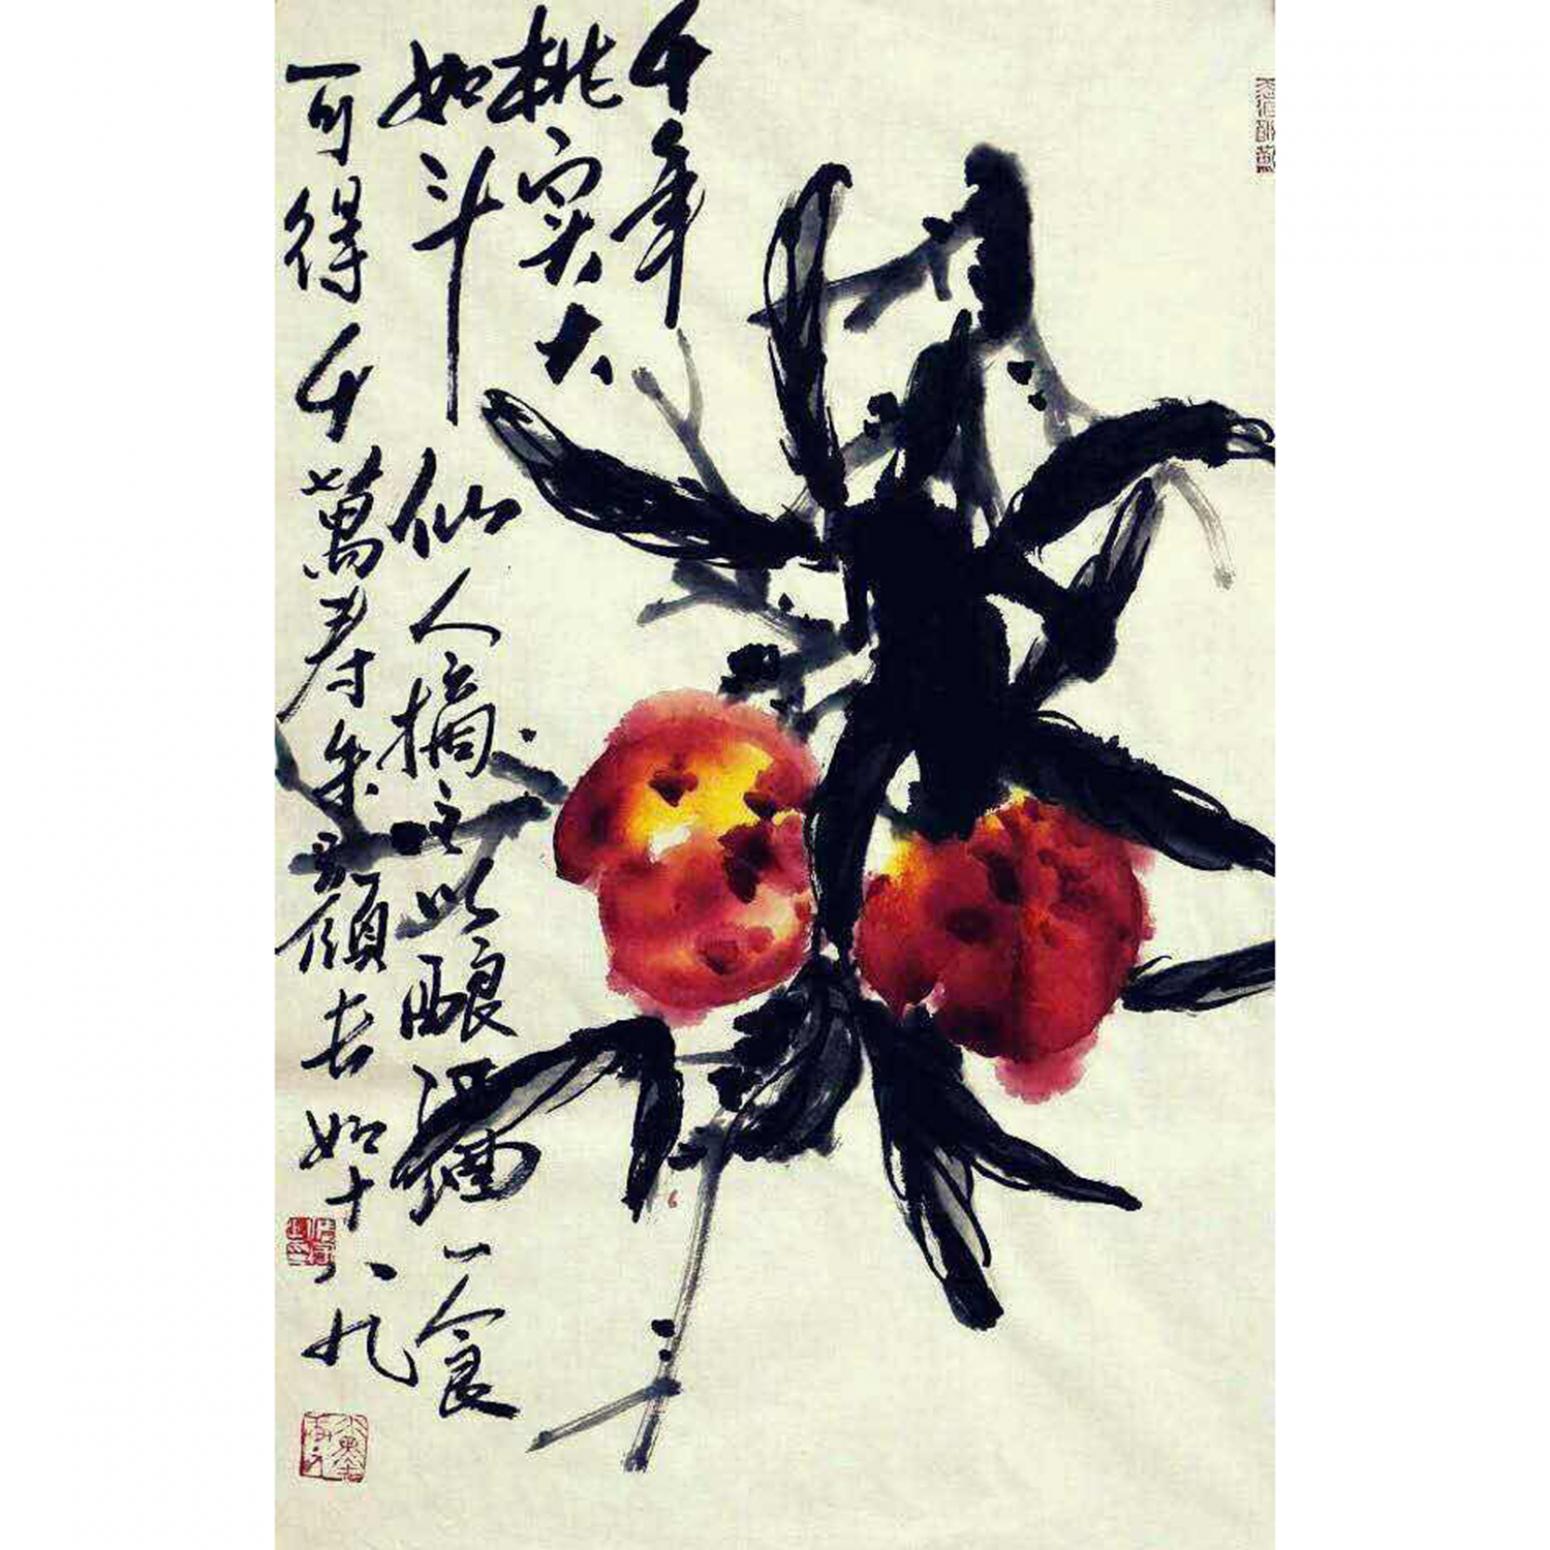 千年
桃实大
如斗仙人摘之以酿酒一食
可得千萬寿朱顔长如十八九